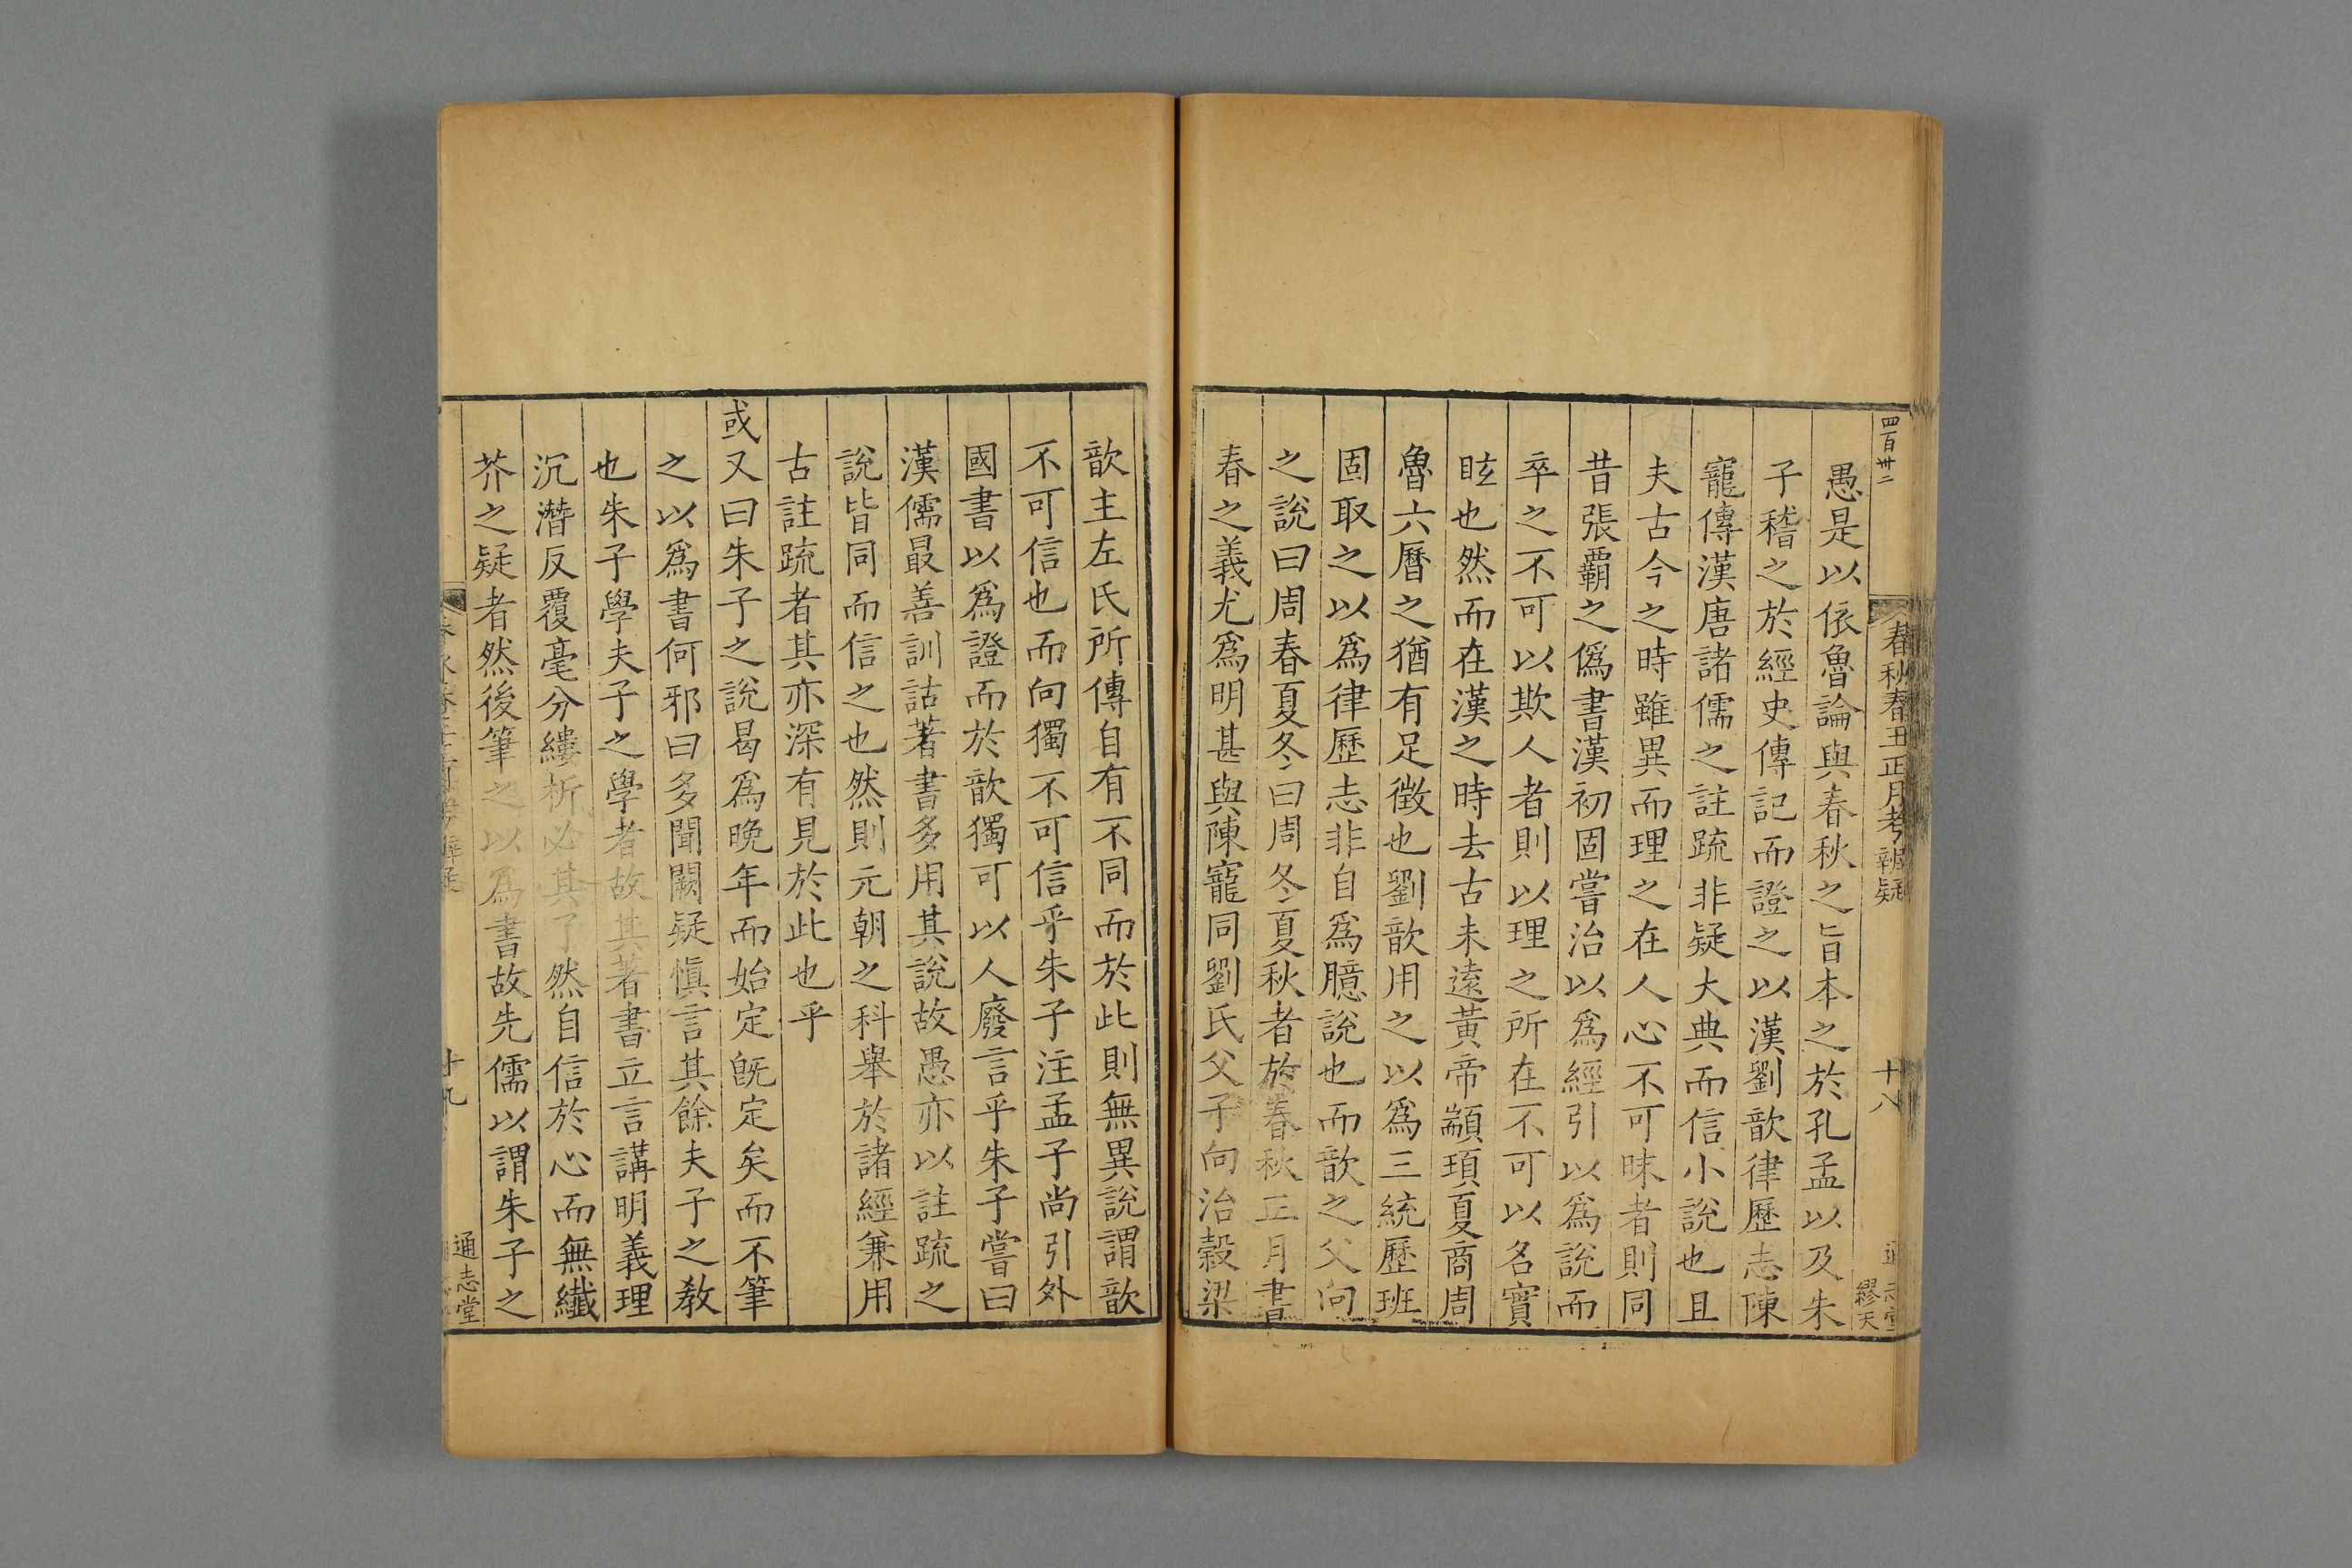 四百卅二
春秋春王正月考辨疑
十八
繆天
愚是以依魯論與春秋之旨本之於孔孟以及朱
子稽之於經史傳記而證之以漢劉歆律歷志陳
寵傳漢唐諸儒之註疏非疑大典而信小說也且
夫古今之時雖異而理之在人心不可昧者則同
昔張霸之僞書漢初固嘗治以爲經引以爲說而
卒之不可以欺人者則以理之所在不可以名實
眩也然而在漢之時去古未遠黃帝顓頊夏商周
魯六曆之猶有足徵也劉歆用之以爲三統歷班
固取之以爲律歷志非自爲臆說也而歆之父向
之說曰周春夏冬曰周冬夏秋者於春秋正月書
春之義尤爲明甚與陳寵同劉氏父子向治穀梁
歆主左氏所傳自有不同而於此則無異說謂歆
不可信也而向獨不可信乎朱子注孟子尚引外
國書以爲證而於歆獨可以人廢言乎朱子嘗曰
漢儒最善訓詁著書多用其說故愚亦以註疏之
說皆同而信之也然則元朝之科舉於諸經兼用
古註疏者其亦深有見於此也乎
或又曰朱子之說曷爲晚年而始定旣定矣而不筆
之以爲書何邪曰多聞闕疑愼言其餘夫子之敎
也朱子學夫子之學者故其著書立言講明義理
沉潛反覆毫分縷析必其了然自信於心而無纖
芥之疑者然後筆之以爲書故先儒以謂朱子之
十九
通志堂